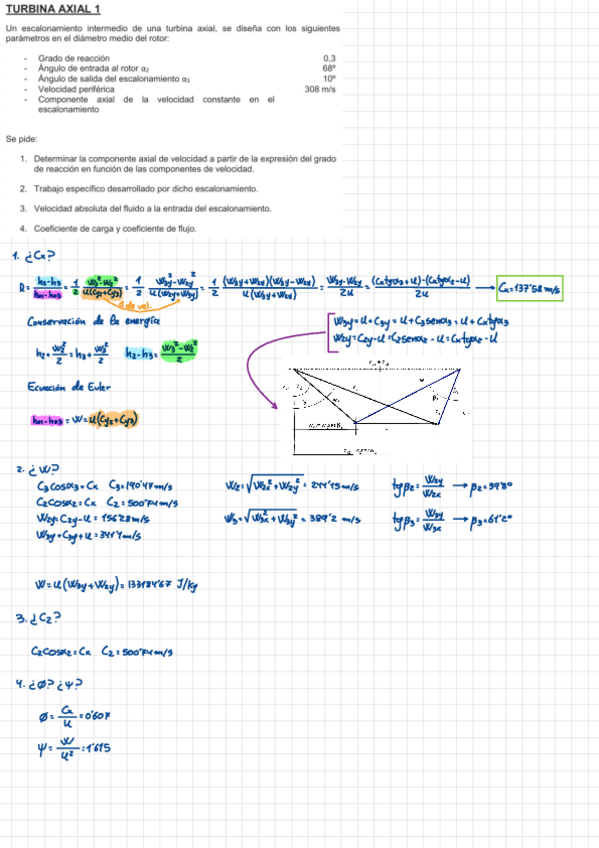 TURBINA AXIAL 1
Un escalonamiento intermedio de una turbina axial, se diseña con los siguientes
parámetros en el diámetro medio del rotor:
- Grado de reacción 0,3
- Ángulo de entrada al rotor α2 68º
- Ángulo de salida del escalonamiento α3 10º
- Velocidad periférica 308 m/s
- Componente axial de la velocidad constante en el
escalonamiento
Se pide:
1. Determinar la componente axial de velocidad a partir de la expresión del grado
de reacción en función de las componentes de velocidad.
2. Trabajo específico desarrollado por dicho escalonamiento.
3. Velocidad absoluta del fluido a la entrada del escalonamiento.
4. Coeficiente de carga y coeficiente de flujo.
1. ¿Cx?
R = (h2-h3)/(h02-h03) = 1/2 (W3²-W2²)/(U(Cy2+Cy3)) = 1/2 (W3y²-W2y²)/(U(W2y+W3y)) = 1/2 ((W3y+W2y)(W3y-W2y))/(U(W3y+W2y)) = (W3y-W2y)/2U = ((Cxtgα3+U)-(Cxtgα2-U))/2U → Cx=137'58 m/s
Δ de vel.
Conservación de la energía
h2+W2²/2 = h3+W3²/2 h2-h3 = (W3²-W2²)/2
W3y=U+C3y=U+C3senα3=U+Cxtgα3
W2y=C2y-U=C2senα2-U=Cxtgα2-U
Ecuación de Euler
h02-h03 = W = U(Cy2+Cy3)
2. ¿W?
C3cosα3=Cx C3=190'47m/s
C2cosα2=Cx C2=500'74m/s
W2y=C2y-U=156'28m/s
W3y=C3y+U=341'1m/s
W2=√(W2x²+W2y²)=244'15m/s
W3=√(W3x²+W3y²)=389'2 m/s
tgβ2=W2y/W2x → β2=39'8º
tgβ3=W3y/W3x → β3=61'2º
W=U(W3y+W2y)=133184'67 J/kg
3. ¿C2?
C2cosα2=Cx C2=500'74m/s
4. ¿Ø? ¿Ψ?
Ø=Cx/U=0'607
Ψ=W/U²=1'615